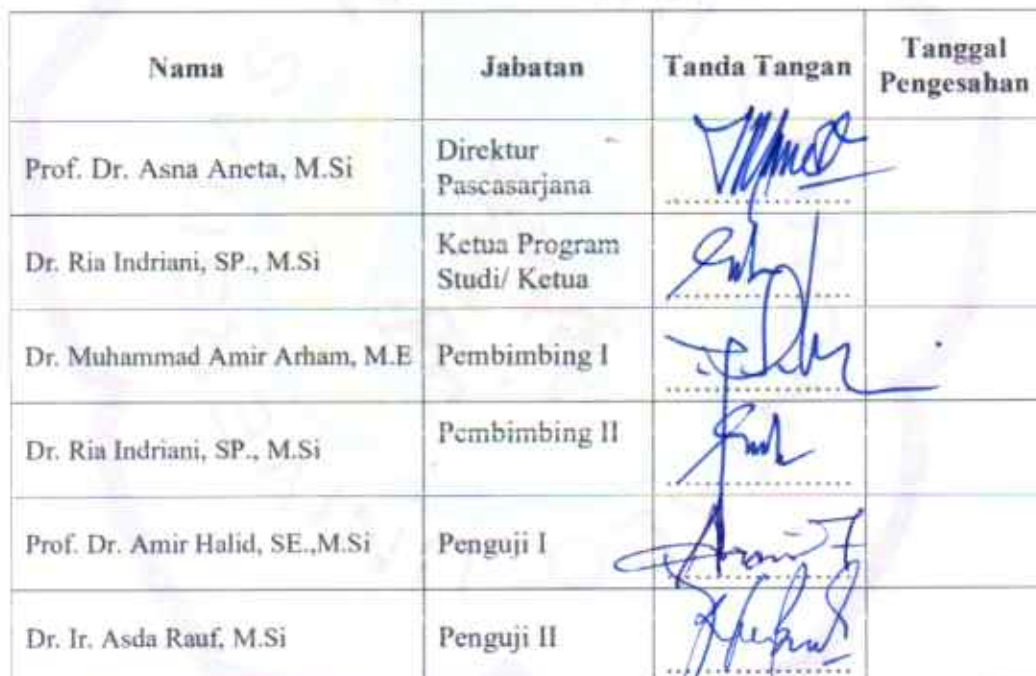 Nama Jabatan Tanda Tangan Tanggal Pengesahan
Prof. Dr. Asna Aneta, M.Si Direktur Pascasarjana
Dr. Ria Indriani, SP., M.Si Ketua Program Studi/ Ketua
Dr. Muhammad Amir Arham, M.E Pembimbing I
Dr. Ria Indriani, SP., M.Si Pembimbing II
Prof. Dr. Amir Halid, SE.,M.Si Penguji I
Dr. Ir. Asda Rauf, M.Si Penguji II